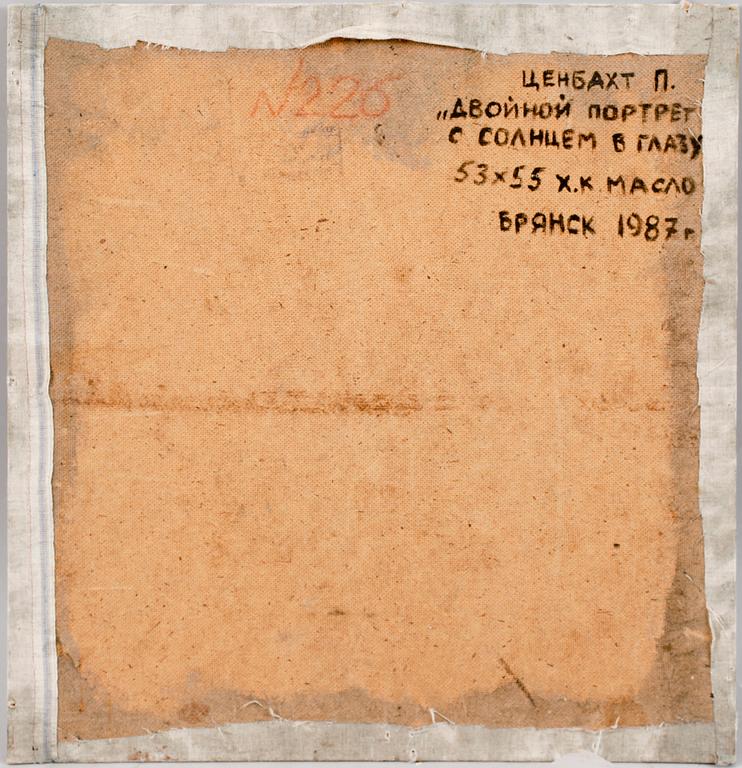 №226
ЦЕНБАХТ П.
„ДВОЙНОЙ ПОРТРЕТ
С СОЛНЦЕМ В ГЛАЗУ
53×55 Х.К МАСЛО
БРЯНСК 1987г.